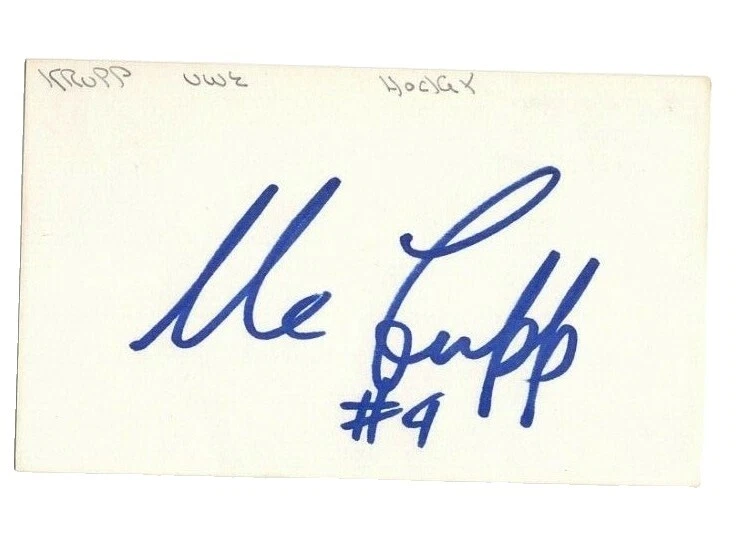 KRUPP UWE HOCKEY
Uwe Krupp
#4